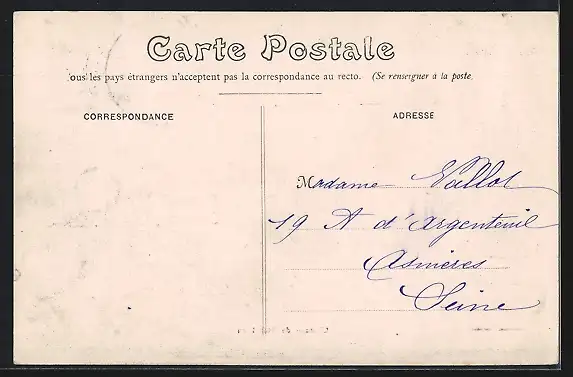 Carte Postale
ous les pays étrangers n'acceptent pas la correspondance au recto. (Se renseigner à la poste
CORRESPONDANCE
ADRESSE
Madame Vallot
19 A d'Argenteuil
Asnières
Seine